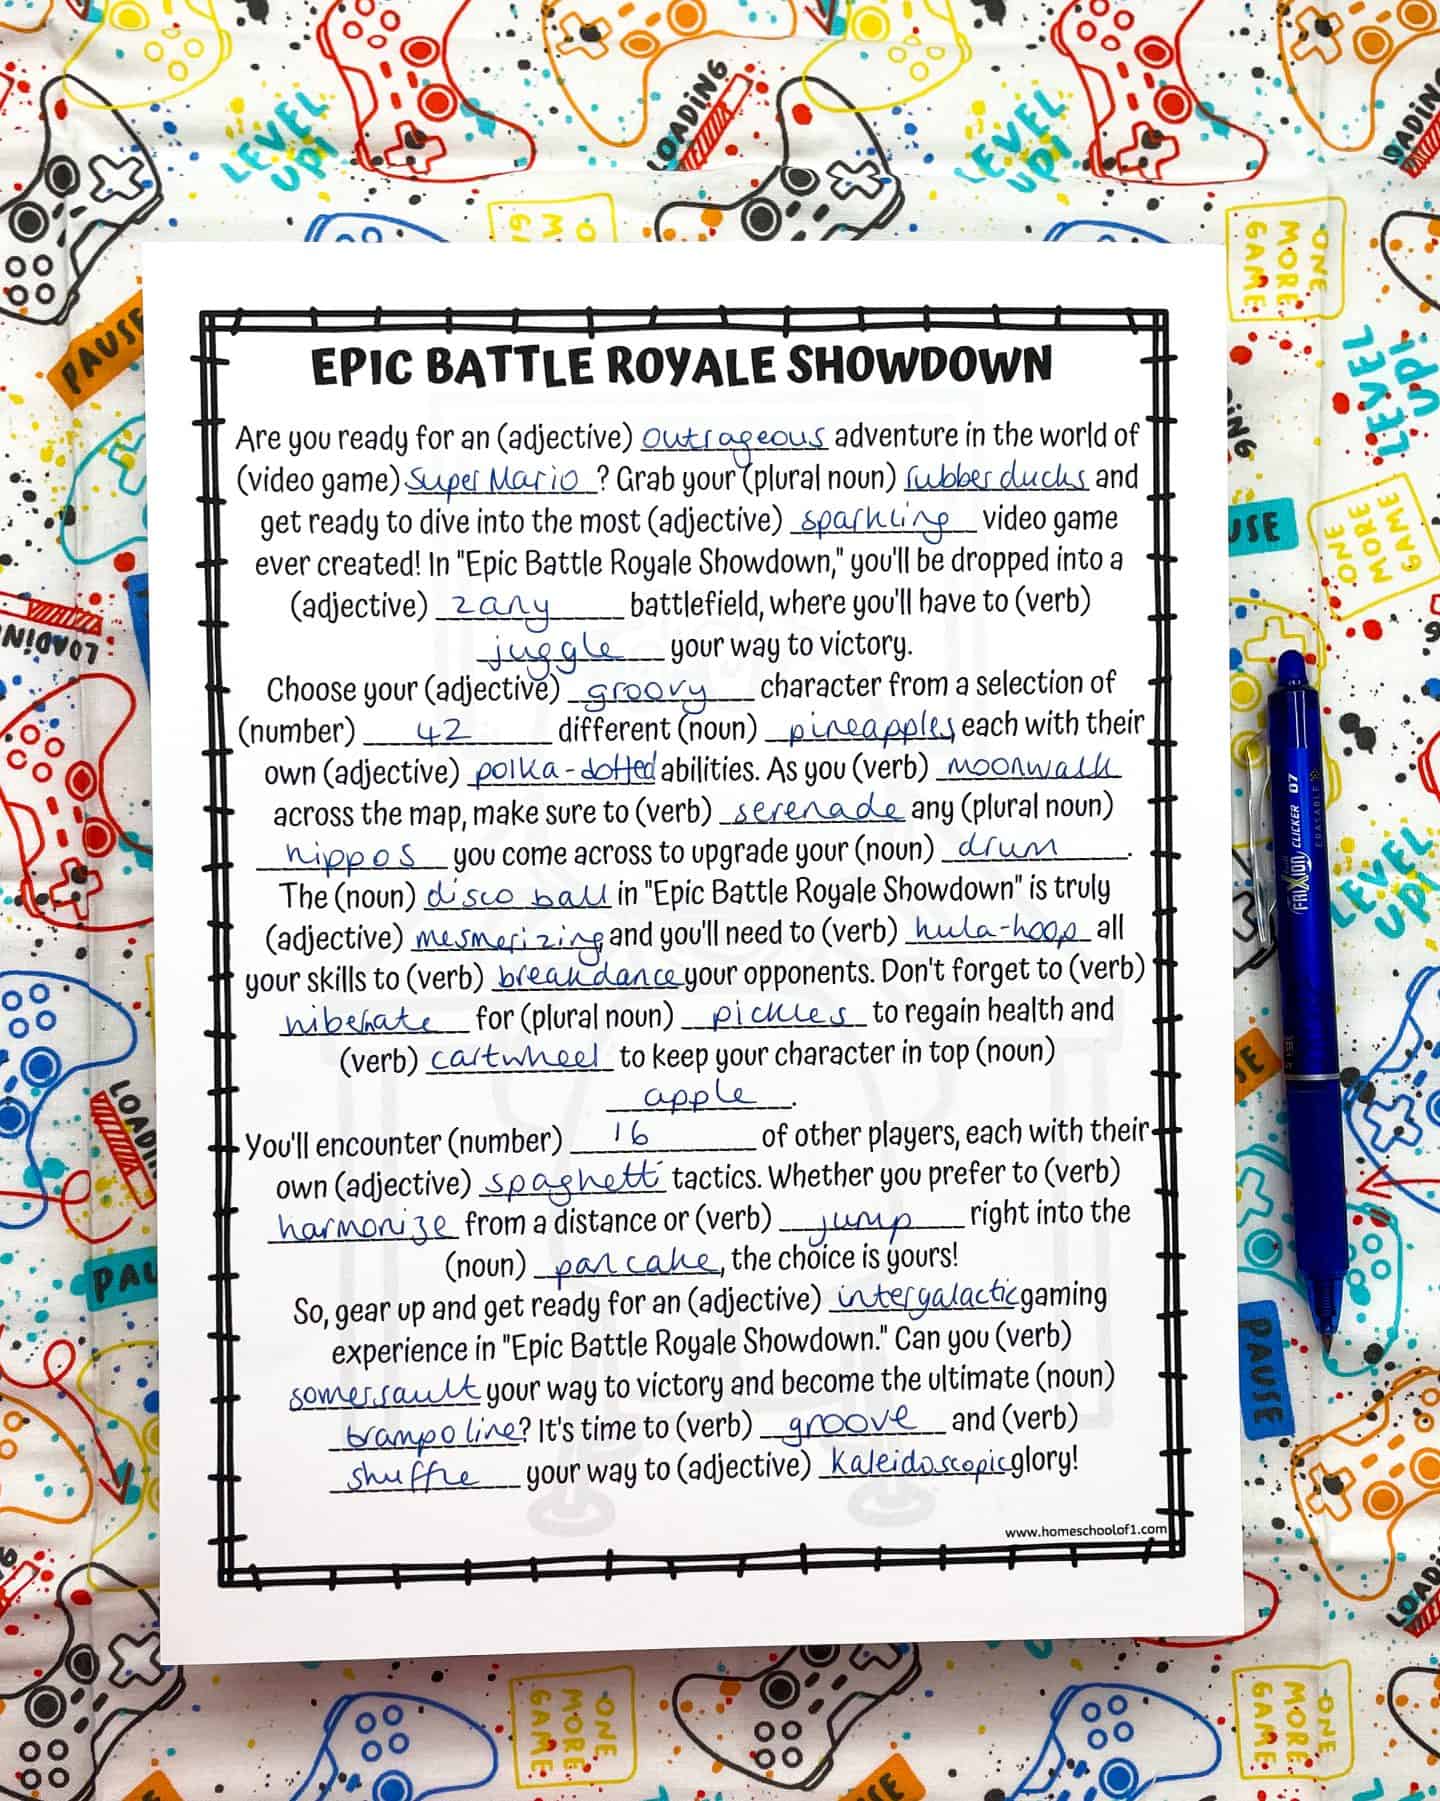 LOADING
LEVEL UP!
LEVEL UP!
LOADING
ONE MORE GAME
ONE MORE GAME
PAUSE
LEVEL UP!
EPIC BATTLE ROYALE SHOWDOWN
Are you ready for an (adjective) outrageous adventure in the world of
(video game) Super Mario ? Grab your (plural noun) rubber ducks and
get ready to dive into the most (adjective) sparkling video game
ever created! In "Epic Battle Royale Showdown," you'll be dropped into a
(adjective) zany battlefield, where you'll have to (verb)
juggle your way to victory.
Choose your (adjective) groovy character from a selection of
(number) 42 different (noun) pineapples, each with their
own (adjective) polka-dotted abilities. As you (verb) moonwalk
across the map, make sure to (verb) serenade any (plural noun)
hippos you come across to upgrade your (noun) drum.
The (noun) disco ball in "Epic Battle Royale Showdown" is truly
(adjective) mesmerizing, and you'll need to (verb) hula-hoop all
your skills to (verb) breakdance your opponents. Don't forget to (verb)
hibernate for (plural noun) pickles to regain health and
(verb) cartwheel to keep your character in top (noun)
apple.
You'll encounter (number) 16 of other players, each with their
own (adjective) spaghetti tactics. Whether you prefer to (verb)
harmonize from a distance or (verb) jump right into the
(noun) pancake, the choice is yours!
So, gear up and get ready for an (adjective) intergalactic gaming
experience in "Epic Battle Royale Showdown." Can you (verb)
somersault your way to victory and become the ultimate (noun)
trampoline? It's time to (verb) groove and (verb)
shuffle your way to (adjective) kaleidoscopic glory!
www.homeschoolof1.com
FriXion CLICKER 07
ERASABLE
LOADING
ONE MORE GAME
LEVEL UP!
PAUSE
ONE MORE GAME
ONE MORE GAME